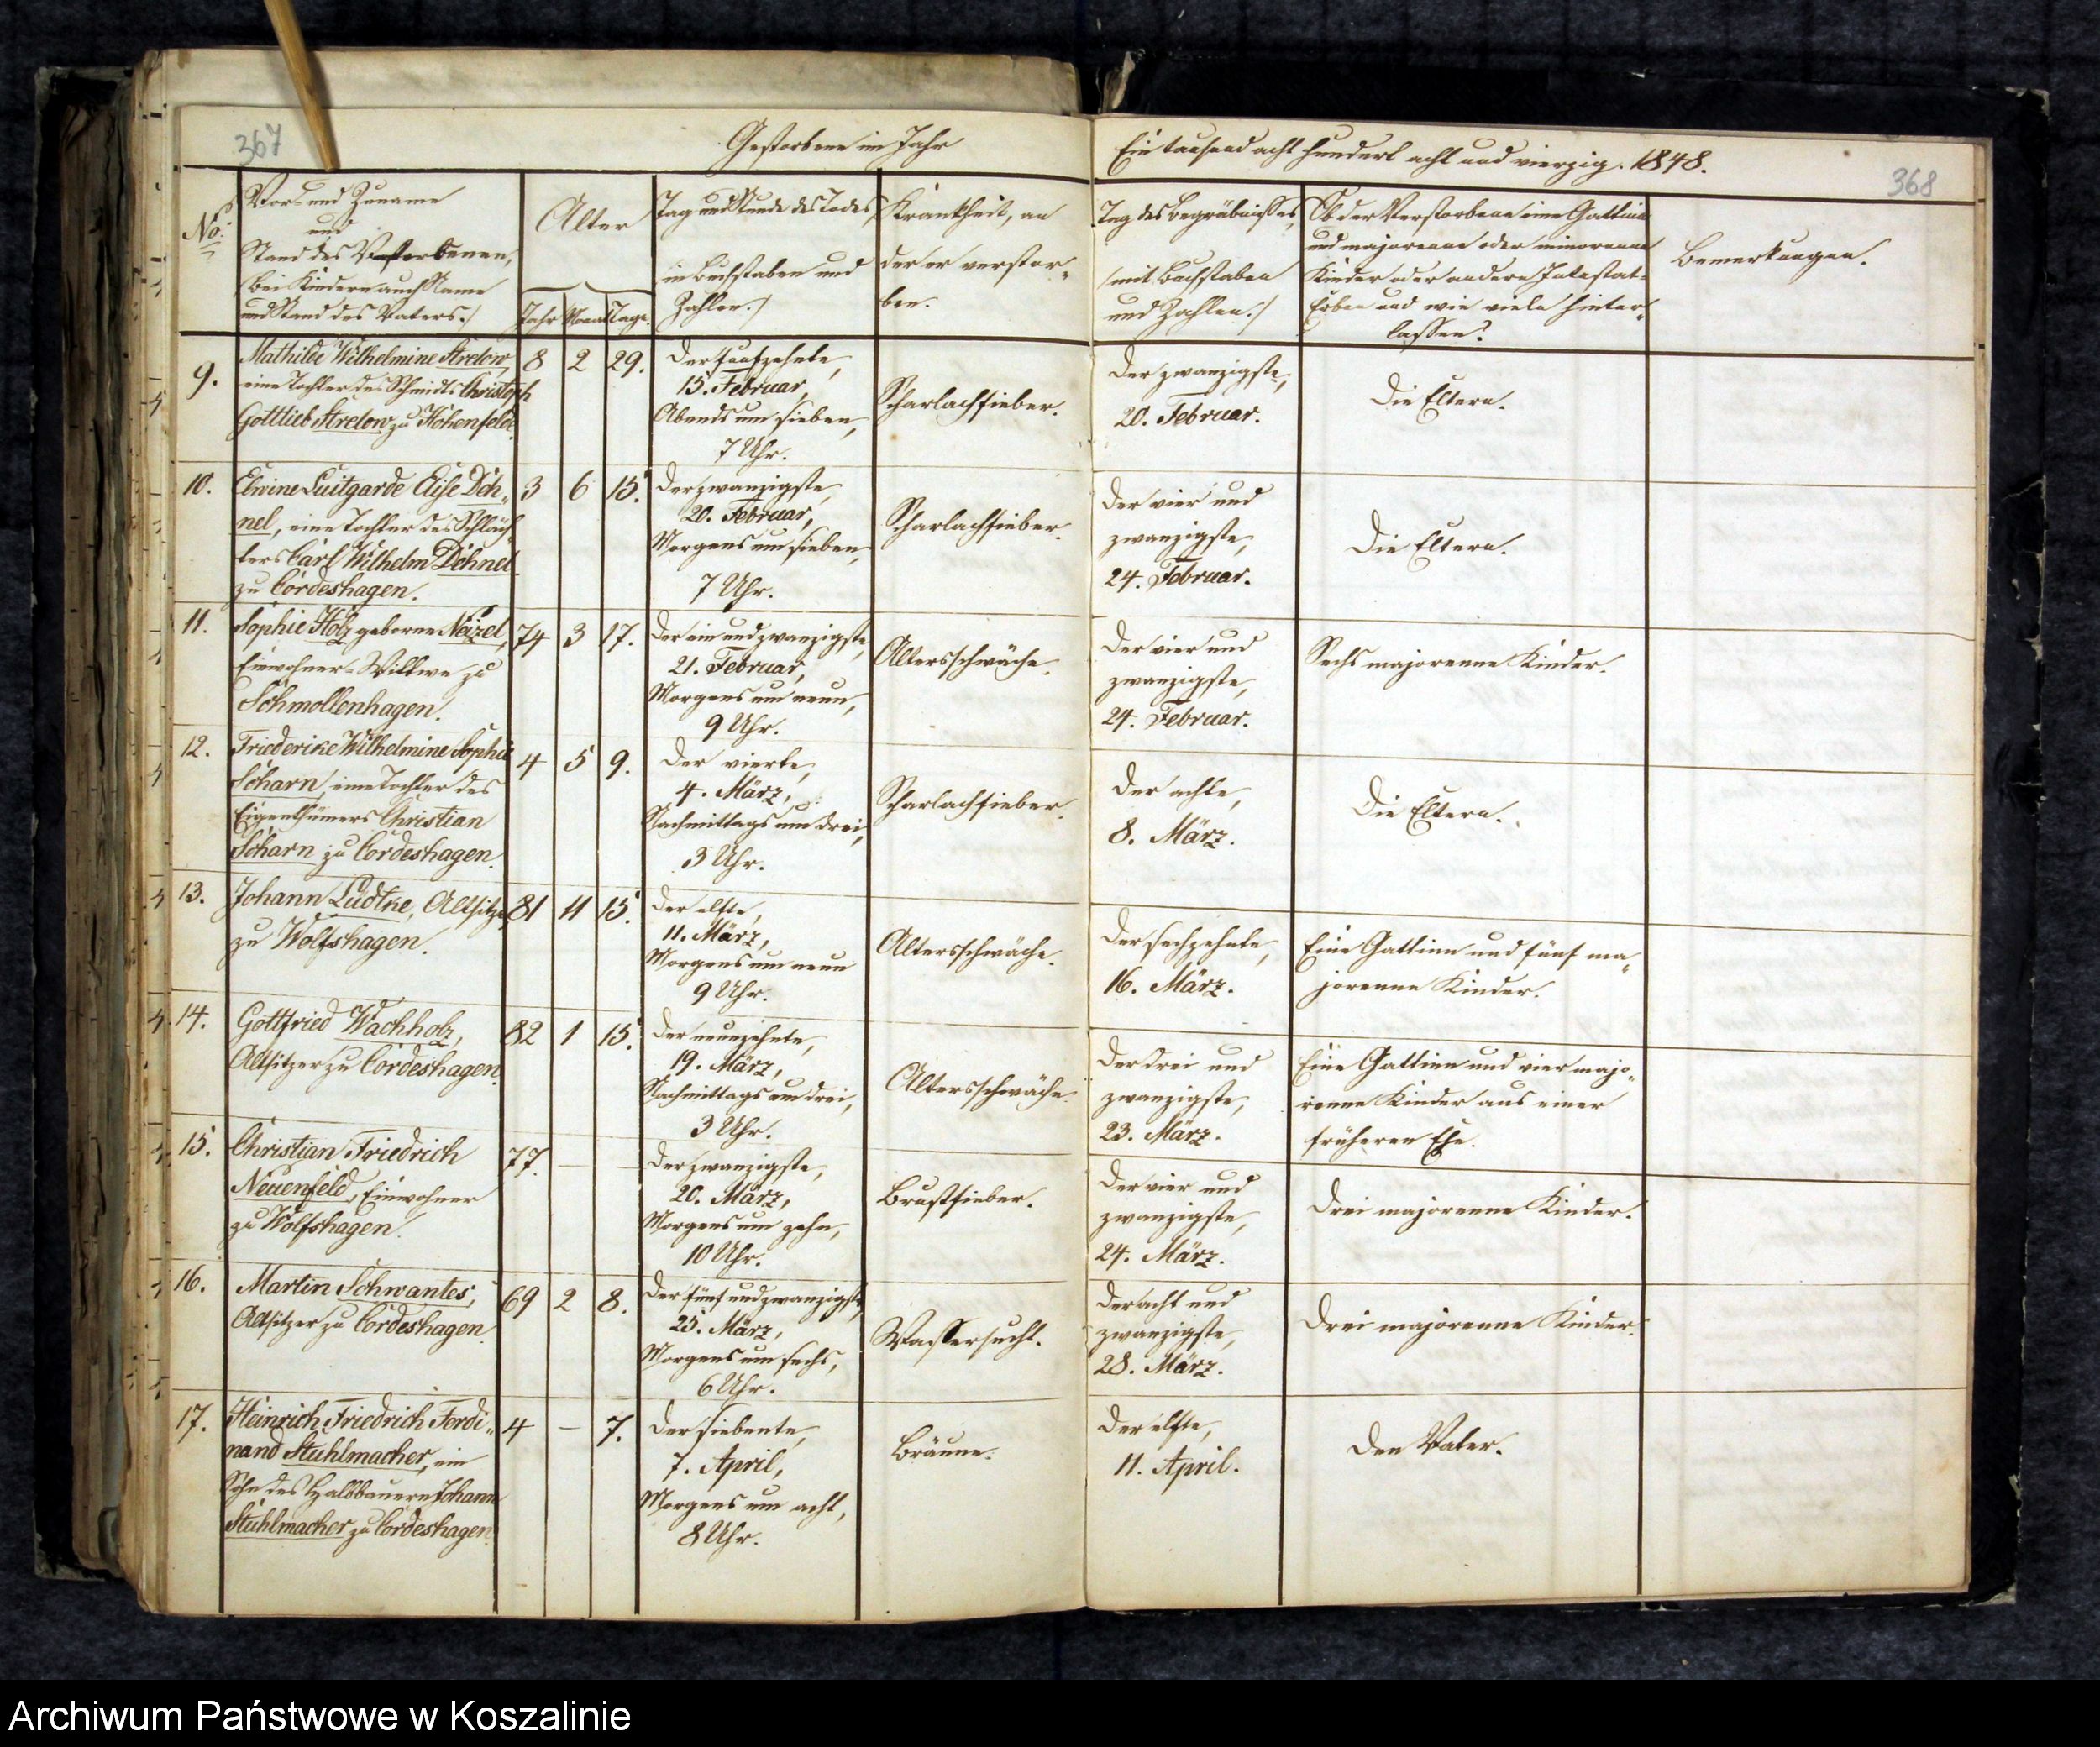 367
Gestorbene im Jahr
No.
Vor- und Zuname
und
Stand des Verstorbenen,
(bei Kindern auch Name
und Stand des Vaters./
Alter
Jahr Monat Tage.
Tag und Stunde des Todes,
in Buchstaben und
Zahlen./
Krankheit, an
der er verstor-
ben.
9.
Mathilde Wilhelmine Strelow,
eine Tochter des Schmidts Christoph
Gottlieb Strelow zu Hohenfelde.
8 2 29.
Der fünfzehnte,
15. Februar,
Abends um sieben,
7 Uhr.
Scharlachfieber.
10.
Elwine Luitgarde Elise Deh-
nel, eine Tochter des Schläch-
ters Carl Wilhelm Dehnel
zu Cordeshagen.
3 6 15.
Der zwanzigste,
20. Februar,
Morgens um sieben,
7 Uhr.
Scharlachfieber.
11.
Sophie Holz geborne Neizel,
Einwohner-Wittwe zu
Schmollenhagen.
74 3 17.
Der ein und zwanzigste,
21. Februar,
Morgens um neun,
9 Uhr.
Altersschwäche.
12.
Friederike Wilhelmine Sophie
Scharn, eine Tochter des
Eigenthümers Christian
Scharn zu Cordeshagen.
4 5 9.
Der vierte,
4. März,
Nachmittags um drei,
3 Uhr.
Scharlachfieber.
13.
Johann Lüdtke, Altsitzer
zu Wolfshagen.
81 11 15.
Der elfte,
11. März,
Morgens um neun
9 Uhr.
Altersschwäche.
14.
Gottfried Wachholz,
Altsitzer zu Cordeshagen.
82 1 15.
Der neunzehnte,
19. März,
Nachmittags um drei,
3 Uhr.
Altersschwäche.
15.
Christian Friedrich
Neuenfeld, Einwohner
zu Wolfshagen.
77. — —
Der zwanzigste,
20. März,
Morgens um zehn,
10 Uhr.
Brustfieber.
16.
Martin Schwantes,
Altsitzer zu Cordeshagen.
69 2 8.
Der fünf und zwanzigste,
25. März,
Morgens um sechs,
6 Uhr.
Wassersucht.
17.
Heinrich Friedrich Ferdi-
nand Stuhlmacher, ein
Sohn des Halbbauern Johann
Stuhlmacher zu Cordeshagen.
4 — 7.
Der siebente,
7. April,
Morgens um acht,
8 Uhr.
Bräune.
Ein tausend acht hundert acht und vierzig. 1848.
368
Tag des Begräbnisses,
/mit Buchstaben
und Zahlen./
Ob der Verstorbene eine Gattinn
und majorenne oder minorenne
Kinder oder andere Intestat-
Erben und wie viele hinter-
lassen?
Bemerkungen.
Der zwanzigste,
20. Februar.
Die Eltern.
Der vier und
zwanzigste,
24. Februar.
Die Eltern.
Der vier und
zwanzigste,
24. Februar.
Sechs majorenne Kinder.
Der achte,
8. März.
Die Eltern.
Der sechzehnte,
16. März.
Eine Gattinn und fünf ma-
jorenne Kinder.
Der drei und
zwanzigste,
23. März.
Eine Gattinn und vier majo-
renne Kinder aus einer
früheren Ehe.
Der vier und
zwanzigste,
24. März.
Drei majorenne Kinder.
Der acht und
zwanzigste,
28. März.
Drei majorenne Kinder.
Der elfte,
11. April.
Den Vater.
Archiwum Państwowe w Koszalinie